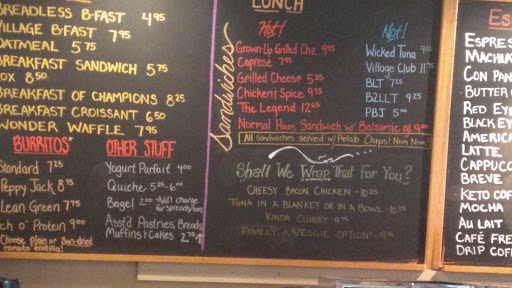 BREADLESS B-FAST 4.95
VILLAGE B-FAST 7.95
OATMEAL 5.75
BREAKFAST SANDWICH 5.75
OX 8.50
BREAKFAST OF CHAMPIONS 8.25
BREAKFAST CROISSANT 6.50
WONDER WAFFLE 7.95
BURRITOS*
Standard 7.25
Peppy Jack 8.75
Lean Green 7.75
ch o' Protein 9.00
Choose plain or sun-dried
tomato tortilla!
OTHER STUFF
Yogurt Parfait 4.00
Quiche 5.25-6.00
Bagel 2.00 -Add'l charge
for spreads/ham
Asst'd Pastries, Breads
Muffins & Cakes 2.75↑
LUNCH
Sandwiches
Hot!
Grown-Up Grilled Chz. 9.95
Caprese 7.95
Grilled Cheese 5.25
Chicken & Spice 9.75
The Legend 12.65
Normal Ham Sandwich w/ Balsamic gl. 9.00
Not!
Wicked Tuna 9.25
Village Club 11.75
BLT 7.25
B2LLT 9.25
PBJ 5.00
All Sandwiches served w/ Potato Chips! Nom Nom!!
Shall We Wrap That For You?
CHEESY BACON CHICKEN - 10.25
TUNA IN A BLANKET OR IN A BOWL - 10.25
KINDA CLUBBY - 9.75
FINALLY, A VEGGIE OPTION! - 9.75
Es
ESPRES
MACHIA
CON PAN
BUTTER
RED EY
BLACK EY
AMERICA
LATTE
CAPPUCC
BREVE
KETO COF
MOCHA
AU LAIT
CAFÉ FRE
DRIP COFF